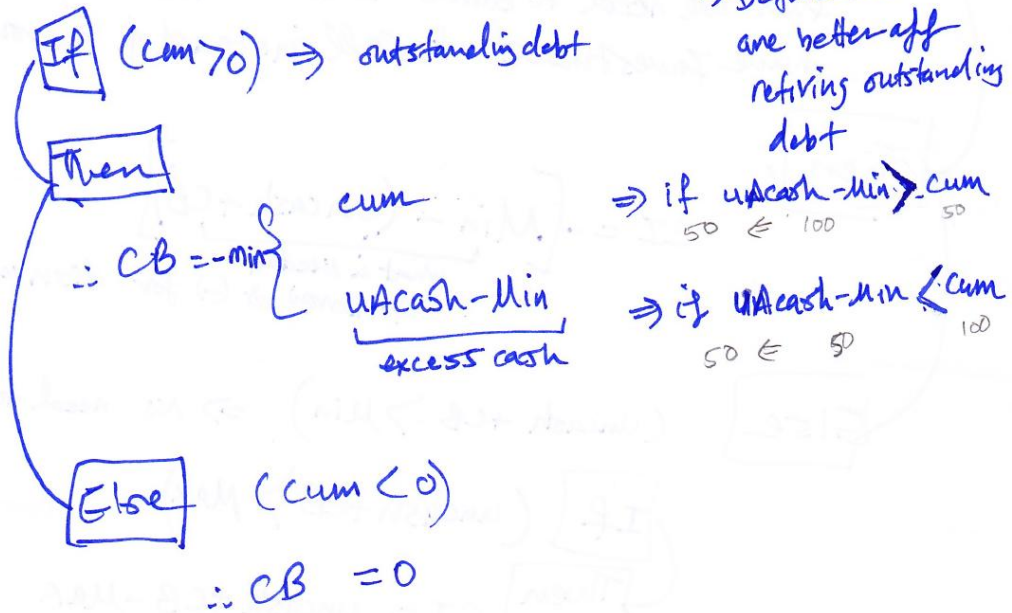 If (cum > 0) ⇒ outstanding debt
are better off
retiring outstanding
debt
Then
∴ CB = -min { cum ⇒ if UAcash-Min > cum
50 ⇐ 100 50
UAcash-Min ⇒ if UAcash-Min < cum
excess cash 50 ⇐ 50 100
Else (cum < 0)
∴ CB = 0